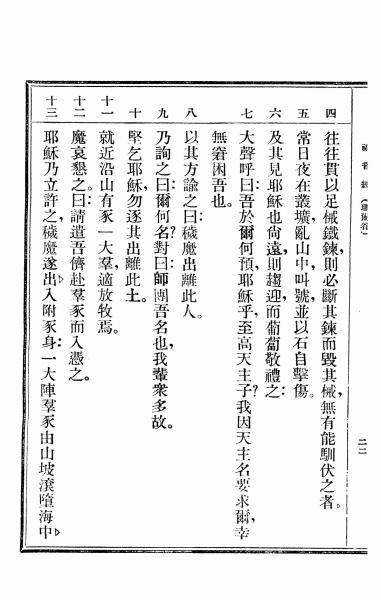 福音經(瑪爾谷)
二二
四 往往貫以足械鐵鍊,則必斷其鍊而毀其械,無有能馴伏之者。
五 常日夜在叢壙,亂山中叫號,並以石自擊傷。
六 及其見耶穌也尙遠,則趨迎而匍匐敬禮之:
七 大聲呼曰:吾於爾何預,耶穌乎,至高天主子?我因天主名要求爾,幸
無窘困吾也。
八 以其方諭之曰:穢魔出離此人。
九 乃詢之曰:爾何名?對曰:師團吾名也,我輩衆多故。
十 堅乞耶穌,勿逐其出離此土。
十一 就近沿山有豕一大羣,適放牧焉。
十二 魔哀懇之。曰:請遣吾儕赴羣豕而入憑之。
十三 耶穌乃立許之,穢魔遂出,入附豕身:一大陣羣豕由山坡滾墮海中,